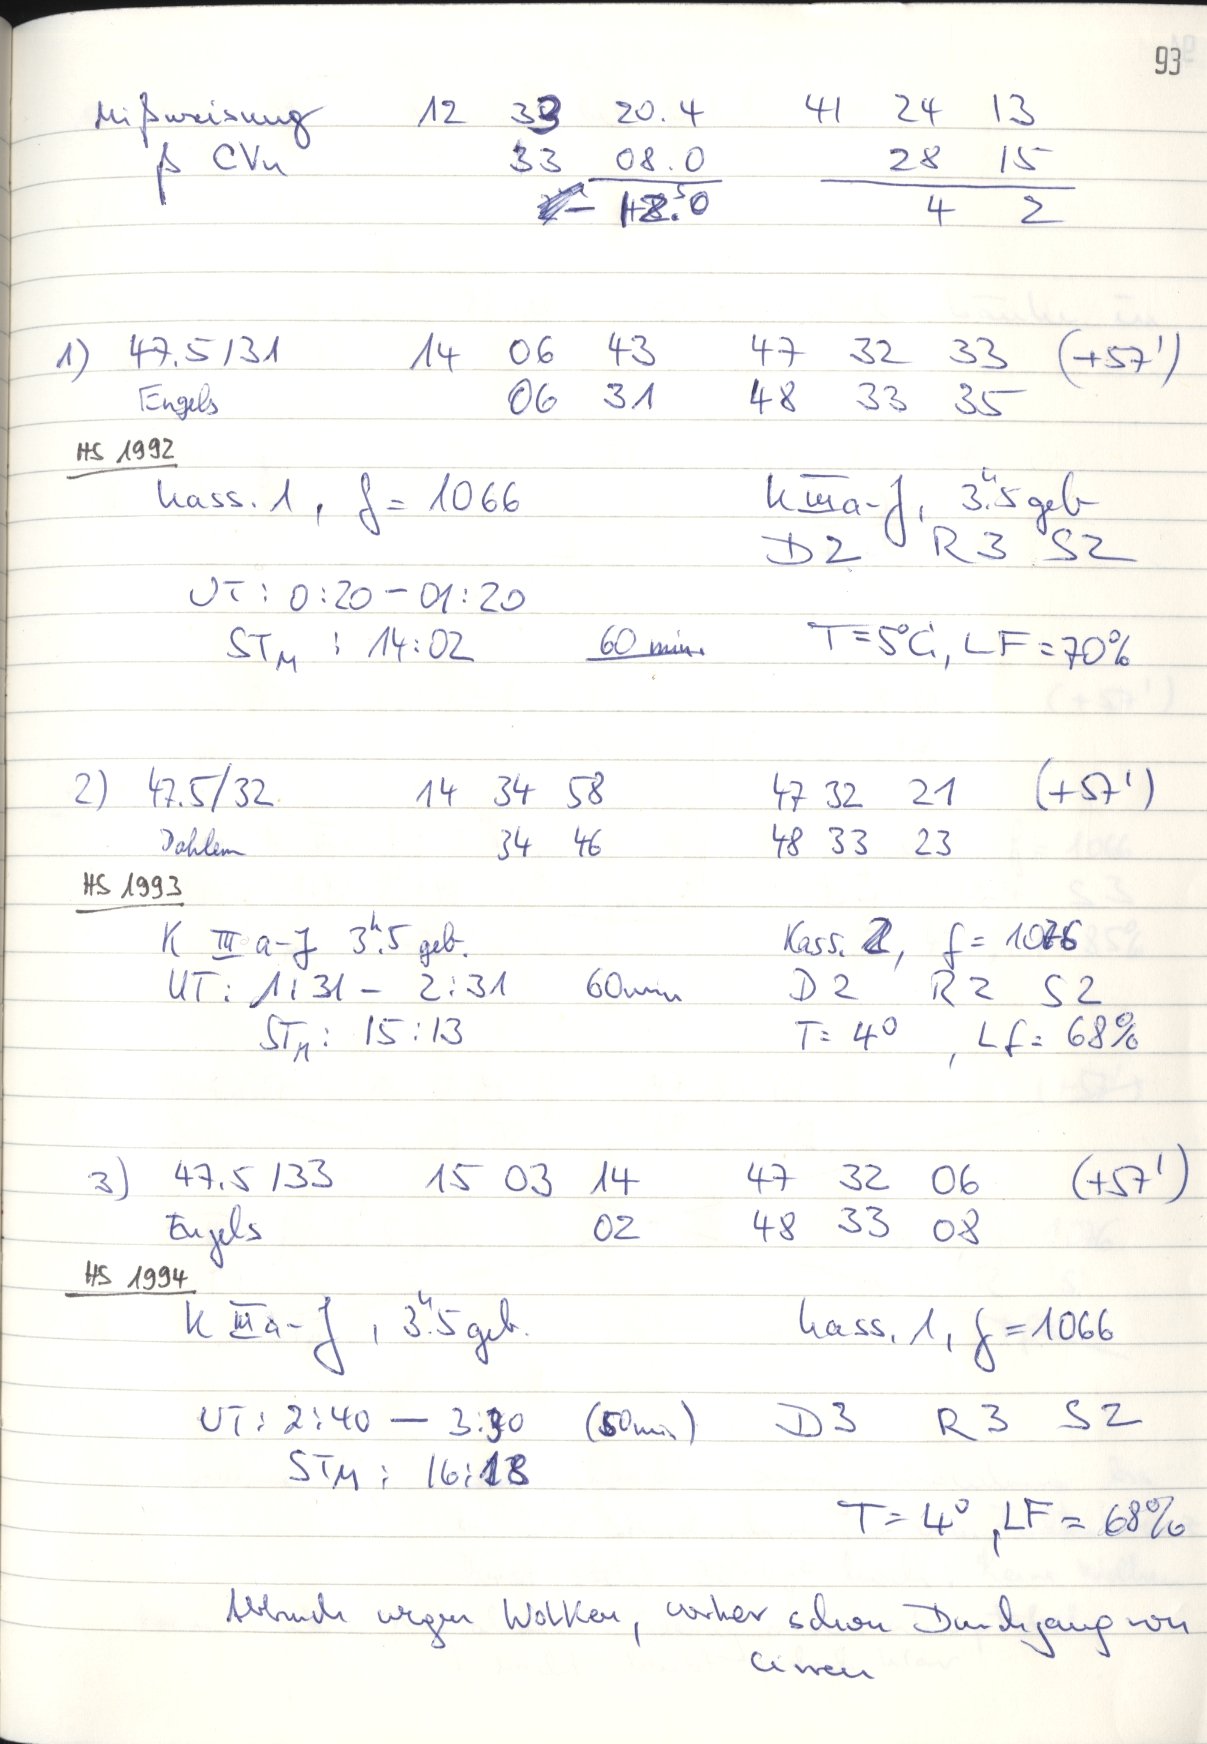 93
Mißweisung 12 33 20.4 41 24 13
β CVn 33 08.0 28 15
- 12.0 4 2
1) 47.5/31 14 06 43 47 32 33 (+57')
Engels 06 31 48 33 35
HS 1992
Kass. 1, f = 1066 K III a-J, 3.ʰ5 geb
D2 R3 S2
UT: 0:20 - 01:20
STM : 14:02 60 min T=5°Ci, LF=70%
2) 47.5/32 14 34 58 47 32 21 (+57')
Dahlem 34 46 48 33 23
HS 1993
K III a-J 3.ʰ5 geb. Kass. 2, f = 1076
UT: 1:31 - 2:31 60min D2 R2 S2
STM: 15:13 T= 4°, Lf= 68%
3) 47.5/33 15 03 14 47 32 06 (+57')
Engels 02 48 33 08
HS 1994
K III a-J, 3.ʰ5 geb. Kass. 1, f = 1066
UT: 2:40 - 3:30 (50min) D3 R3 S2
STM : 16:18
T= 4°, LF= 68%
Abbruch wegen Wolken, vorher schon Durchgang von
Cirren